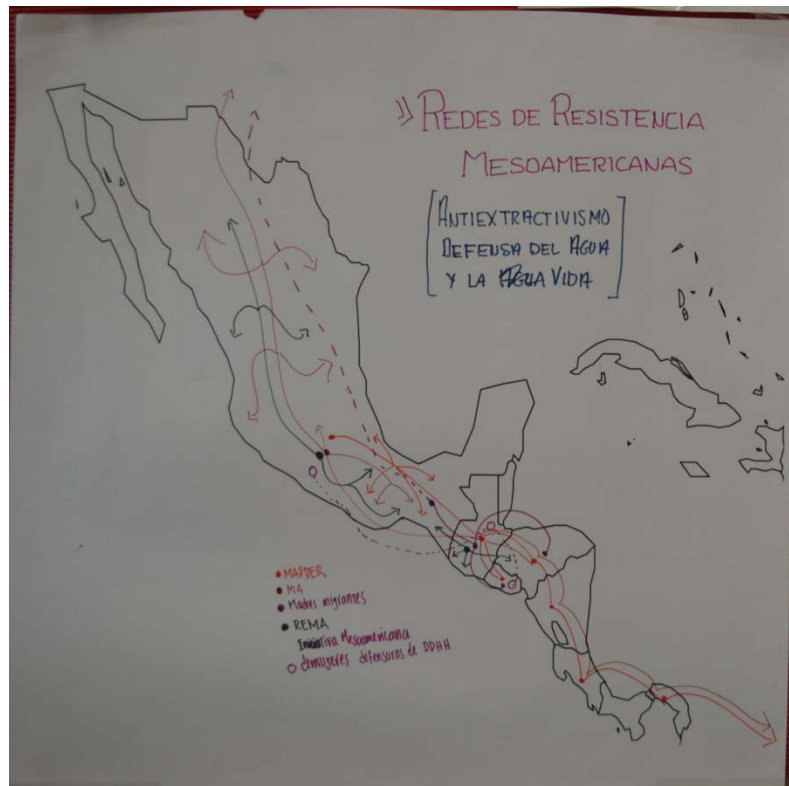 » REDES DE RESISTENCIA
MESOAMERICANAS
[ANTIEXTRACTIVISMO
DEFENSA DEL AGUA
Y LA VIDA]
• MAPDER
• M4
• Madres migrantes
• REMA
Iniciativa Mesoamericana
○ de mujeres defensoras de DDHH